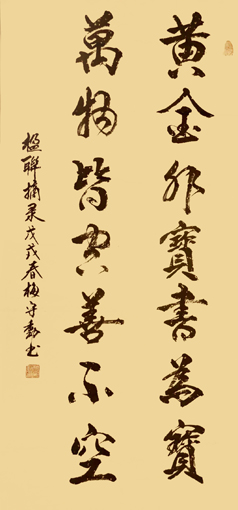 黃金非寶書為寶
萬物皆空善不空
楹聯摘录戊戌春梅守勤书